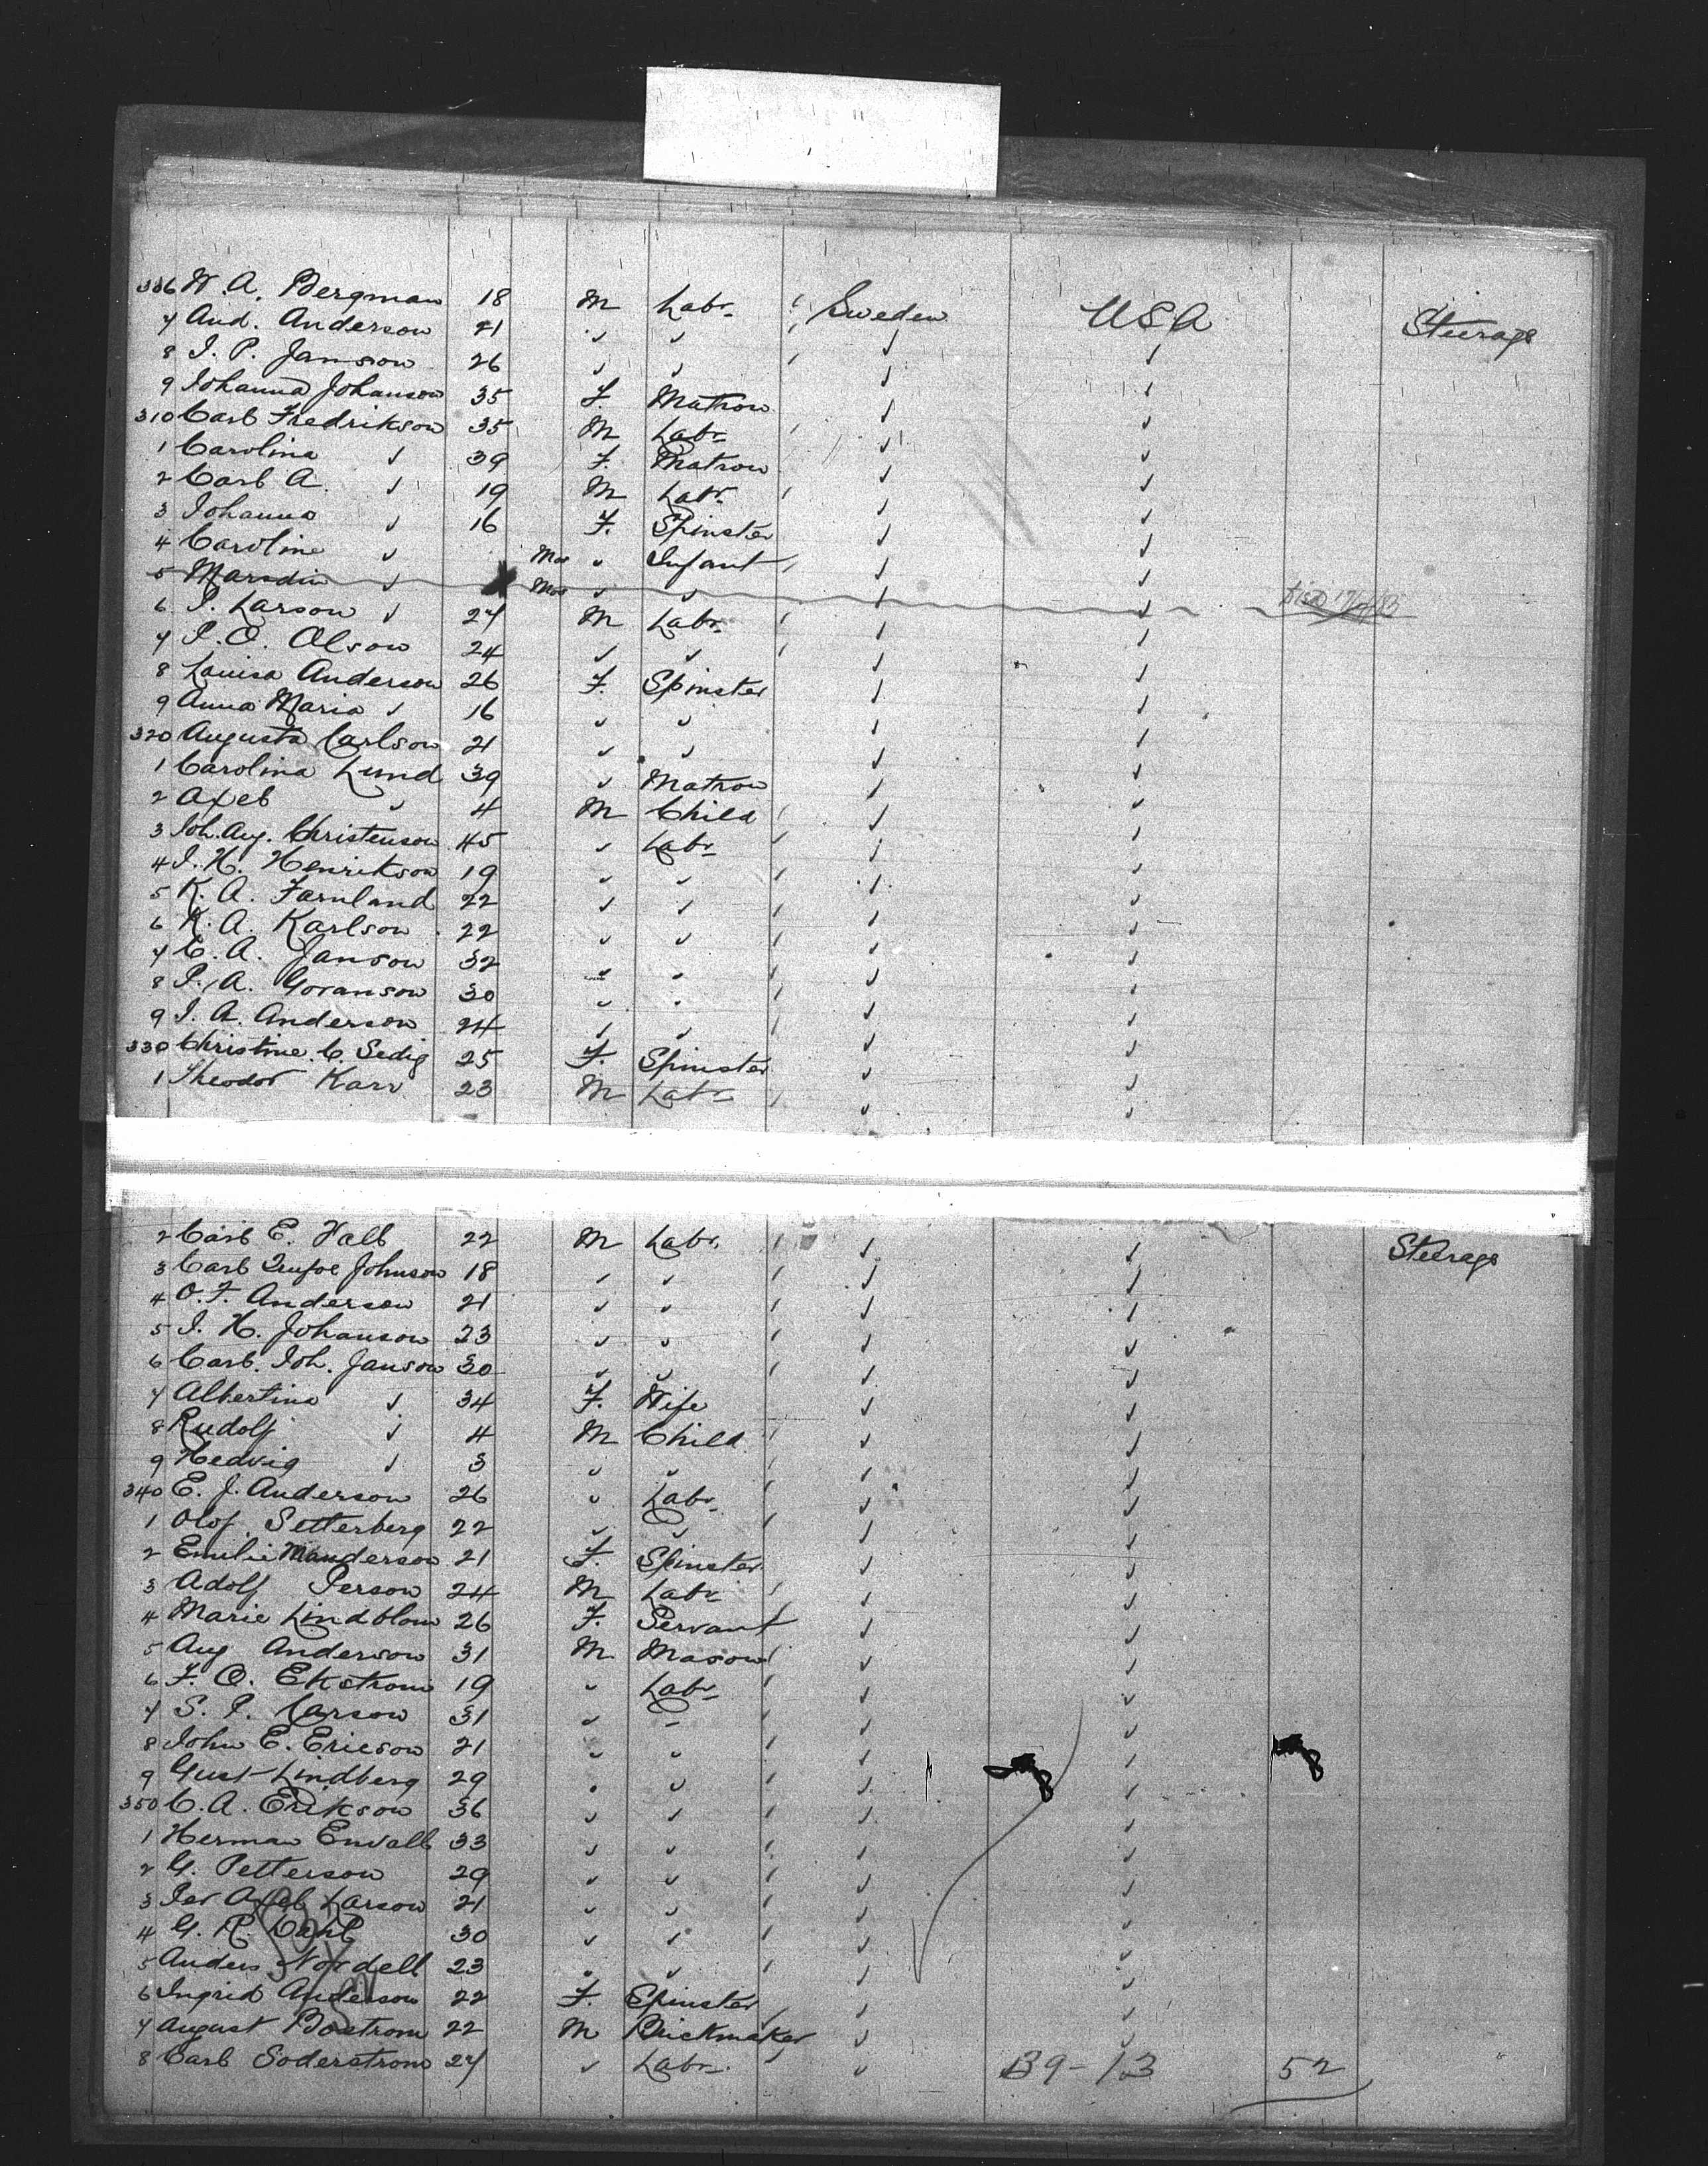 306 W. A. Bergman 18 M Labr. Sweden USA Steerage
7 And. Anderson 21 " " " "
8 I. P. Janson 26 " " " "
9 Johanna Johanson 35 F. Matron " "
310 Carl Fredrikson 35 M Labr " "
1 Carolina " 39 F. Matron " "
2 Carl A. " 19 M Labr. " "
3 Johanna " 16 F. Spinster " "
4 Caroline " Mos " Infant " "
5 " Mos " " " " Died
6 P. Larson " 27 M Labr. " "
7 P. O. Olson 24 " " " "
8 Louisa Anderson 26 F. Spinster " "
9 Anna Maria " 16 " " " "
320 Augusta Carlson 21 " " " "
1 Carolina Lund 39 " Matron " "
2 Axel " 4 M Child " "
3 Joh. Aug. Christenson 45 " Labr " "
4 I. H. Henrikson 19 " " " "
5 K. A. Farnland 22 " " " "
6 K. A. Karlson 22 " " " "
7 C. A. Janson 32 " " " "
8 P. A. Goranson 30 " " " "
9 I. A. Anderson 24 " " " "
330 Christine C. Sedig 25 F. Spinster " "
1 Theodor Karr 23 M Labr " "
2 Carl E. Hall 22 M Labr. " " Steerage
3 Carl Johnson 18 " " " "
4 O. F. Anderson 21 " " " "
5 I. H. Johanson 23 " " " "
6 Carl Joh. Janson 30 " " " "
7 Albertina " 34 F. Wife " "
8 Rudolf " 4 M Child " "
9 Hedvig " 3 " " " "
340 E. J. Anderson 26 " Labr. " "
1 Olof Setterberg 22 " " " "
2 Emilie Manderson 21 F. Spinster " "
3 Adolf Person 24 M Labr. " "
4 Marie Lindblom 26 F. Servant " "
5 Aug Anderson 31 M Mason " "
6 F. O. Ekstrom 19 " Labr " "
7 S. P. Larson 31 " " " "
8 John E. Ericson 21 " " " "
9 Gust Lindberg 29 " " " "
350 C. A. Erikson 36 " " " "
1 Herman Envall 33 " " " "
2 G. Petterson 29 " " " "
3 Per Axel Larson 21 " " " "
4 G. R. Dahl 30 " " " "
5 Anders Nordell 23 " " " "
6 Ingrid Anderson 22 F. Spinster " "
7 August Bostrom 22 M Brickmaker " "
8 Carl Soderstrom 27 " Labr. " B9-13 52